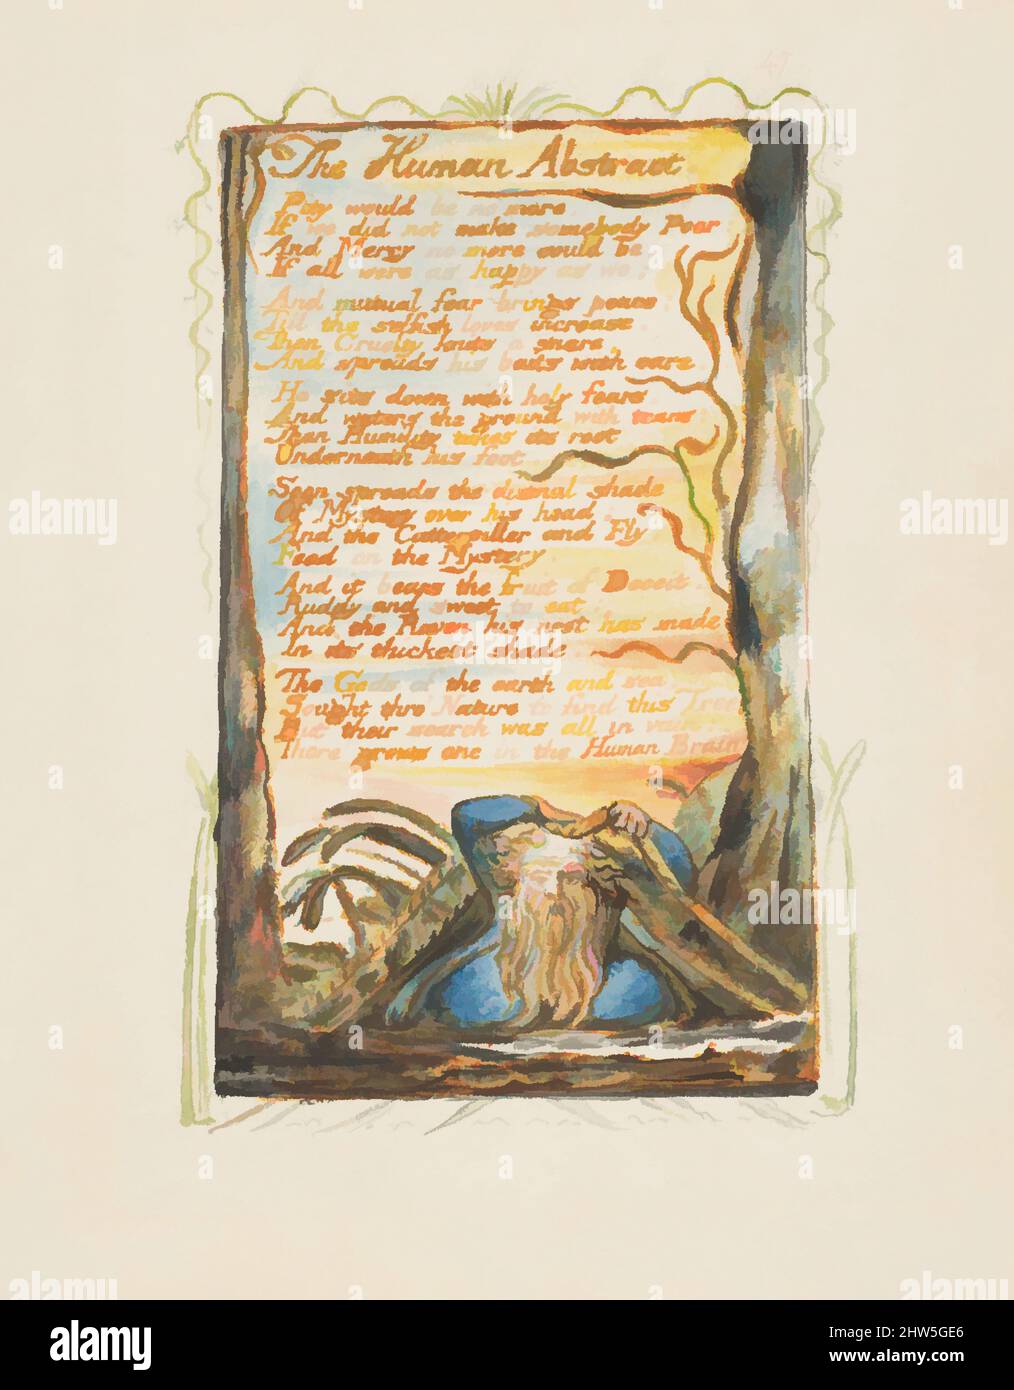 The Human Abstract
Pity would be no more,
If we did not make somebody Poor
And Mercy no more could be
If all were as happy as we;
And mutual fear brings peace
Till the selfish loves increase
Then Cruelty knits a snare,
And spreads his baits with care
He sits down with holy fears
And waters the ground with tears
Then Humility takes its root
Underneath his foot
Soon spreads the dismal shade
Of Mystery over his head
And the Catterpiller and Fly
Feed on the Mystery
And it bears the fruit of Deceit
Ruddy and sweet to eat
And the Raven his nest has made
In its thickest shade
The Gods of the earth and sea
Sought thro Nature to find this Tree
But their search was all in vain
There grows one in the Human Brain
47
a alamy
alamy
Image ID: 2HW5GE6
www.alamy.com